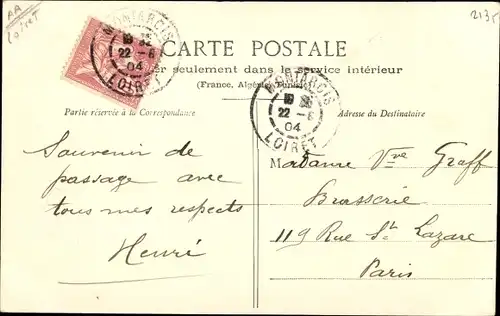 AA
Loiret
213r
MONTARGIS
22 - 6
04
LOIRET
CARTE POSTALE
er seulement dans le service intérieur
(France, Algérie, Tunisie)
MONTARGIS
22 - 6
04
LOIRET
Partie réservée à la Correspondance
Adresse du Destinataire
Souvenir de
passage avec
tous mes respects
Henri
Madame Vve Graff
Brasserie
119 Rue St Lazare
Paris